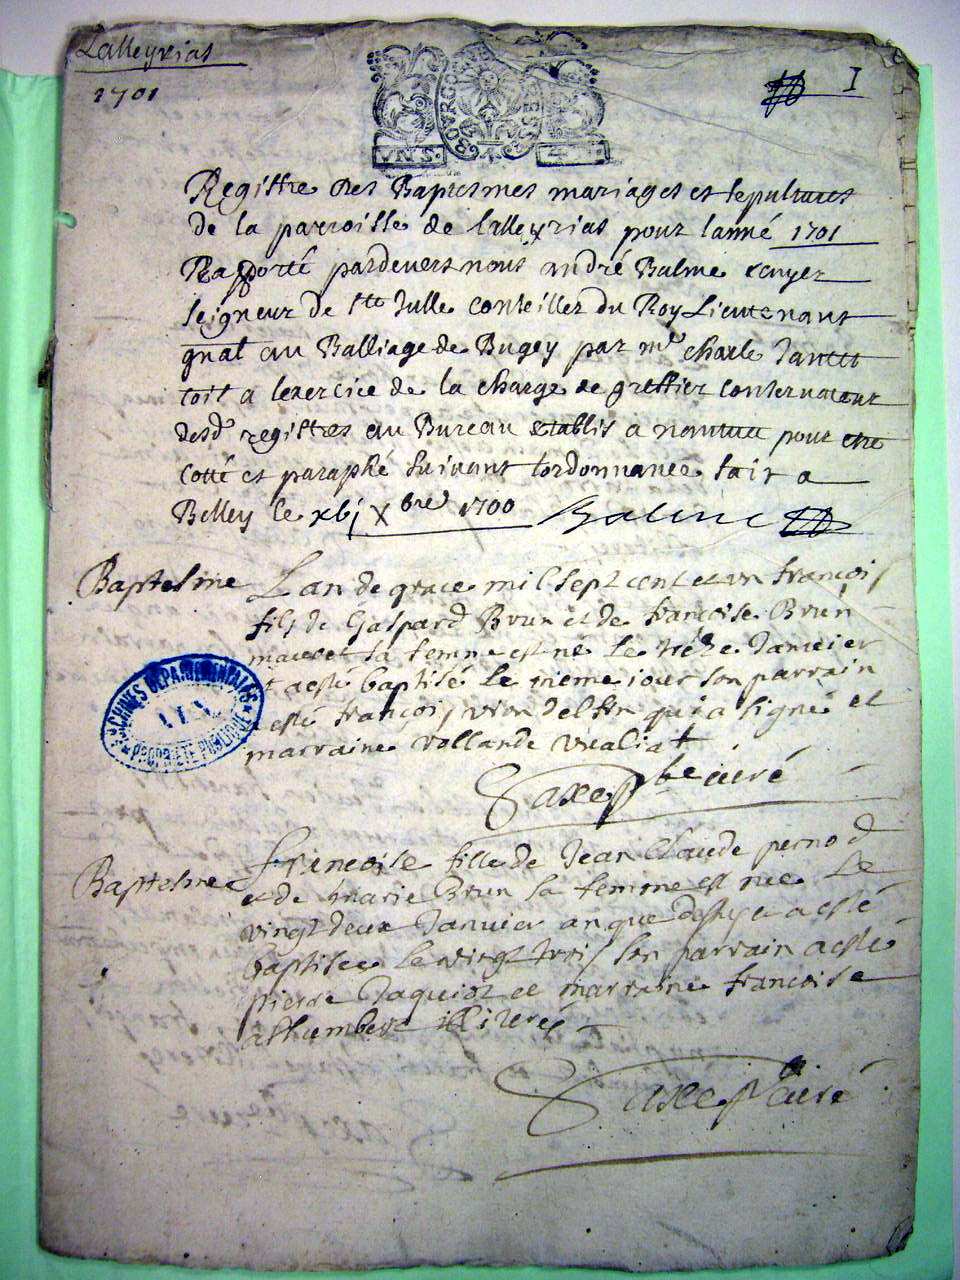 Lalleyrias
1701
I
BOURGOGNE
VN S.
4
Registre des Baptesmes mariages et sepultures
de la parroisse de lalleyrias pour lanné 1701
Rapporté pardevers nous andré Balme escuyer
seigneur de ste Julle conseiller du Roy Lieutenant
gnal au Balliage de Bugey par me charle
commis a lexercice de la charge de greffier conservateur
desd registres au Bureau establis a nantua pour etre
cotté et paraphé suivant lordonnance fait a
Belley le xbj Xbre 1700 Balme
Baptesme Lan de grace mil sept cent et un françois
fils de Gaspard Brun et de françoise Brun
sa femme est né le Janvier
et a esté baptisé le meme jour son parrain
a esté françois qui a signé et
marraine
Saxe pbre curé
ARCHIVES DEPARTEMENTALES
AIN
PROPRIETE PUBLIQUE
Baptesme françoise fille de Jean Claude pernod
et de marie Brun sa femme est nee le
vingt deux Janvier an que dessus et a esté
baptisee le vingt trois son parrain a este
pierre Jaquiot et marraine françoise
Saxe curé